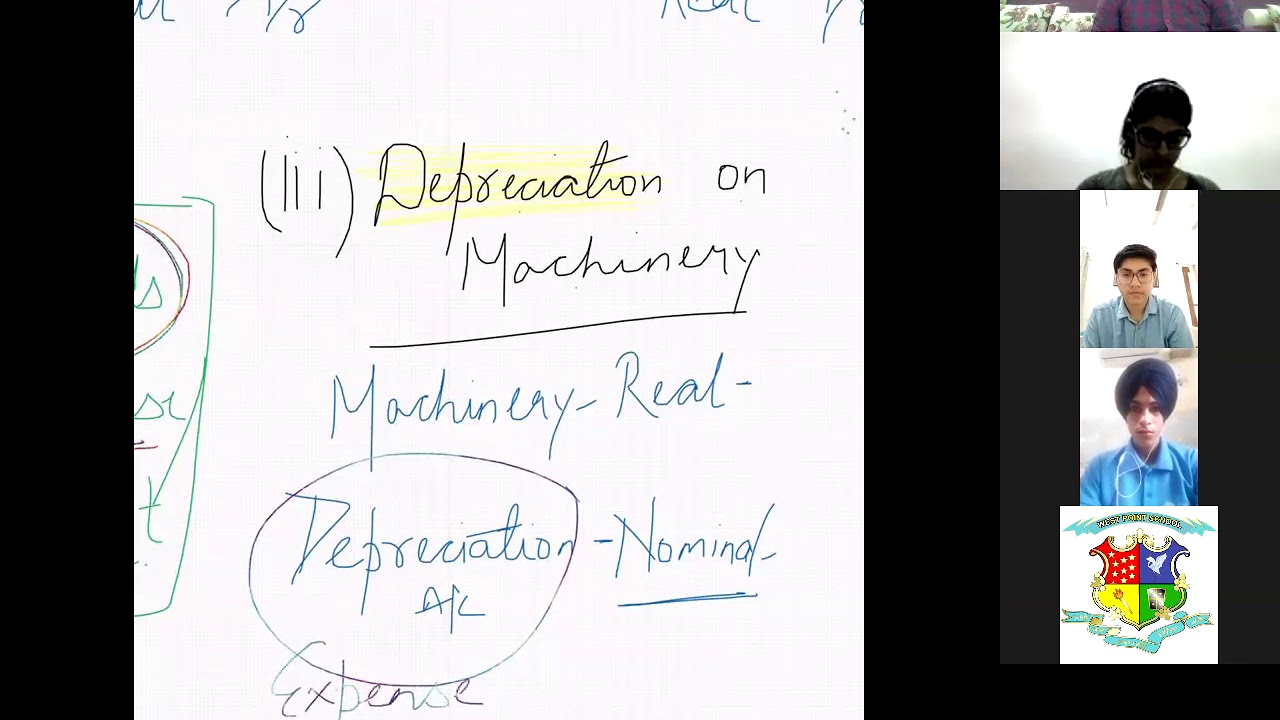 Real
(III) Depreciation on
Machinery
Machinery - Real -
Depreciation - Nominal -
A/c
Expense
WEST POINT SCHOOL